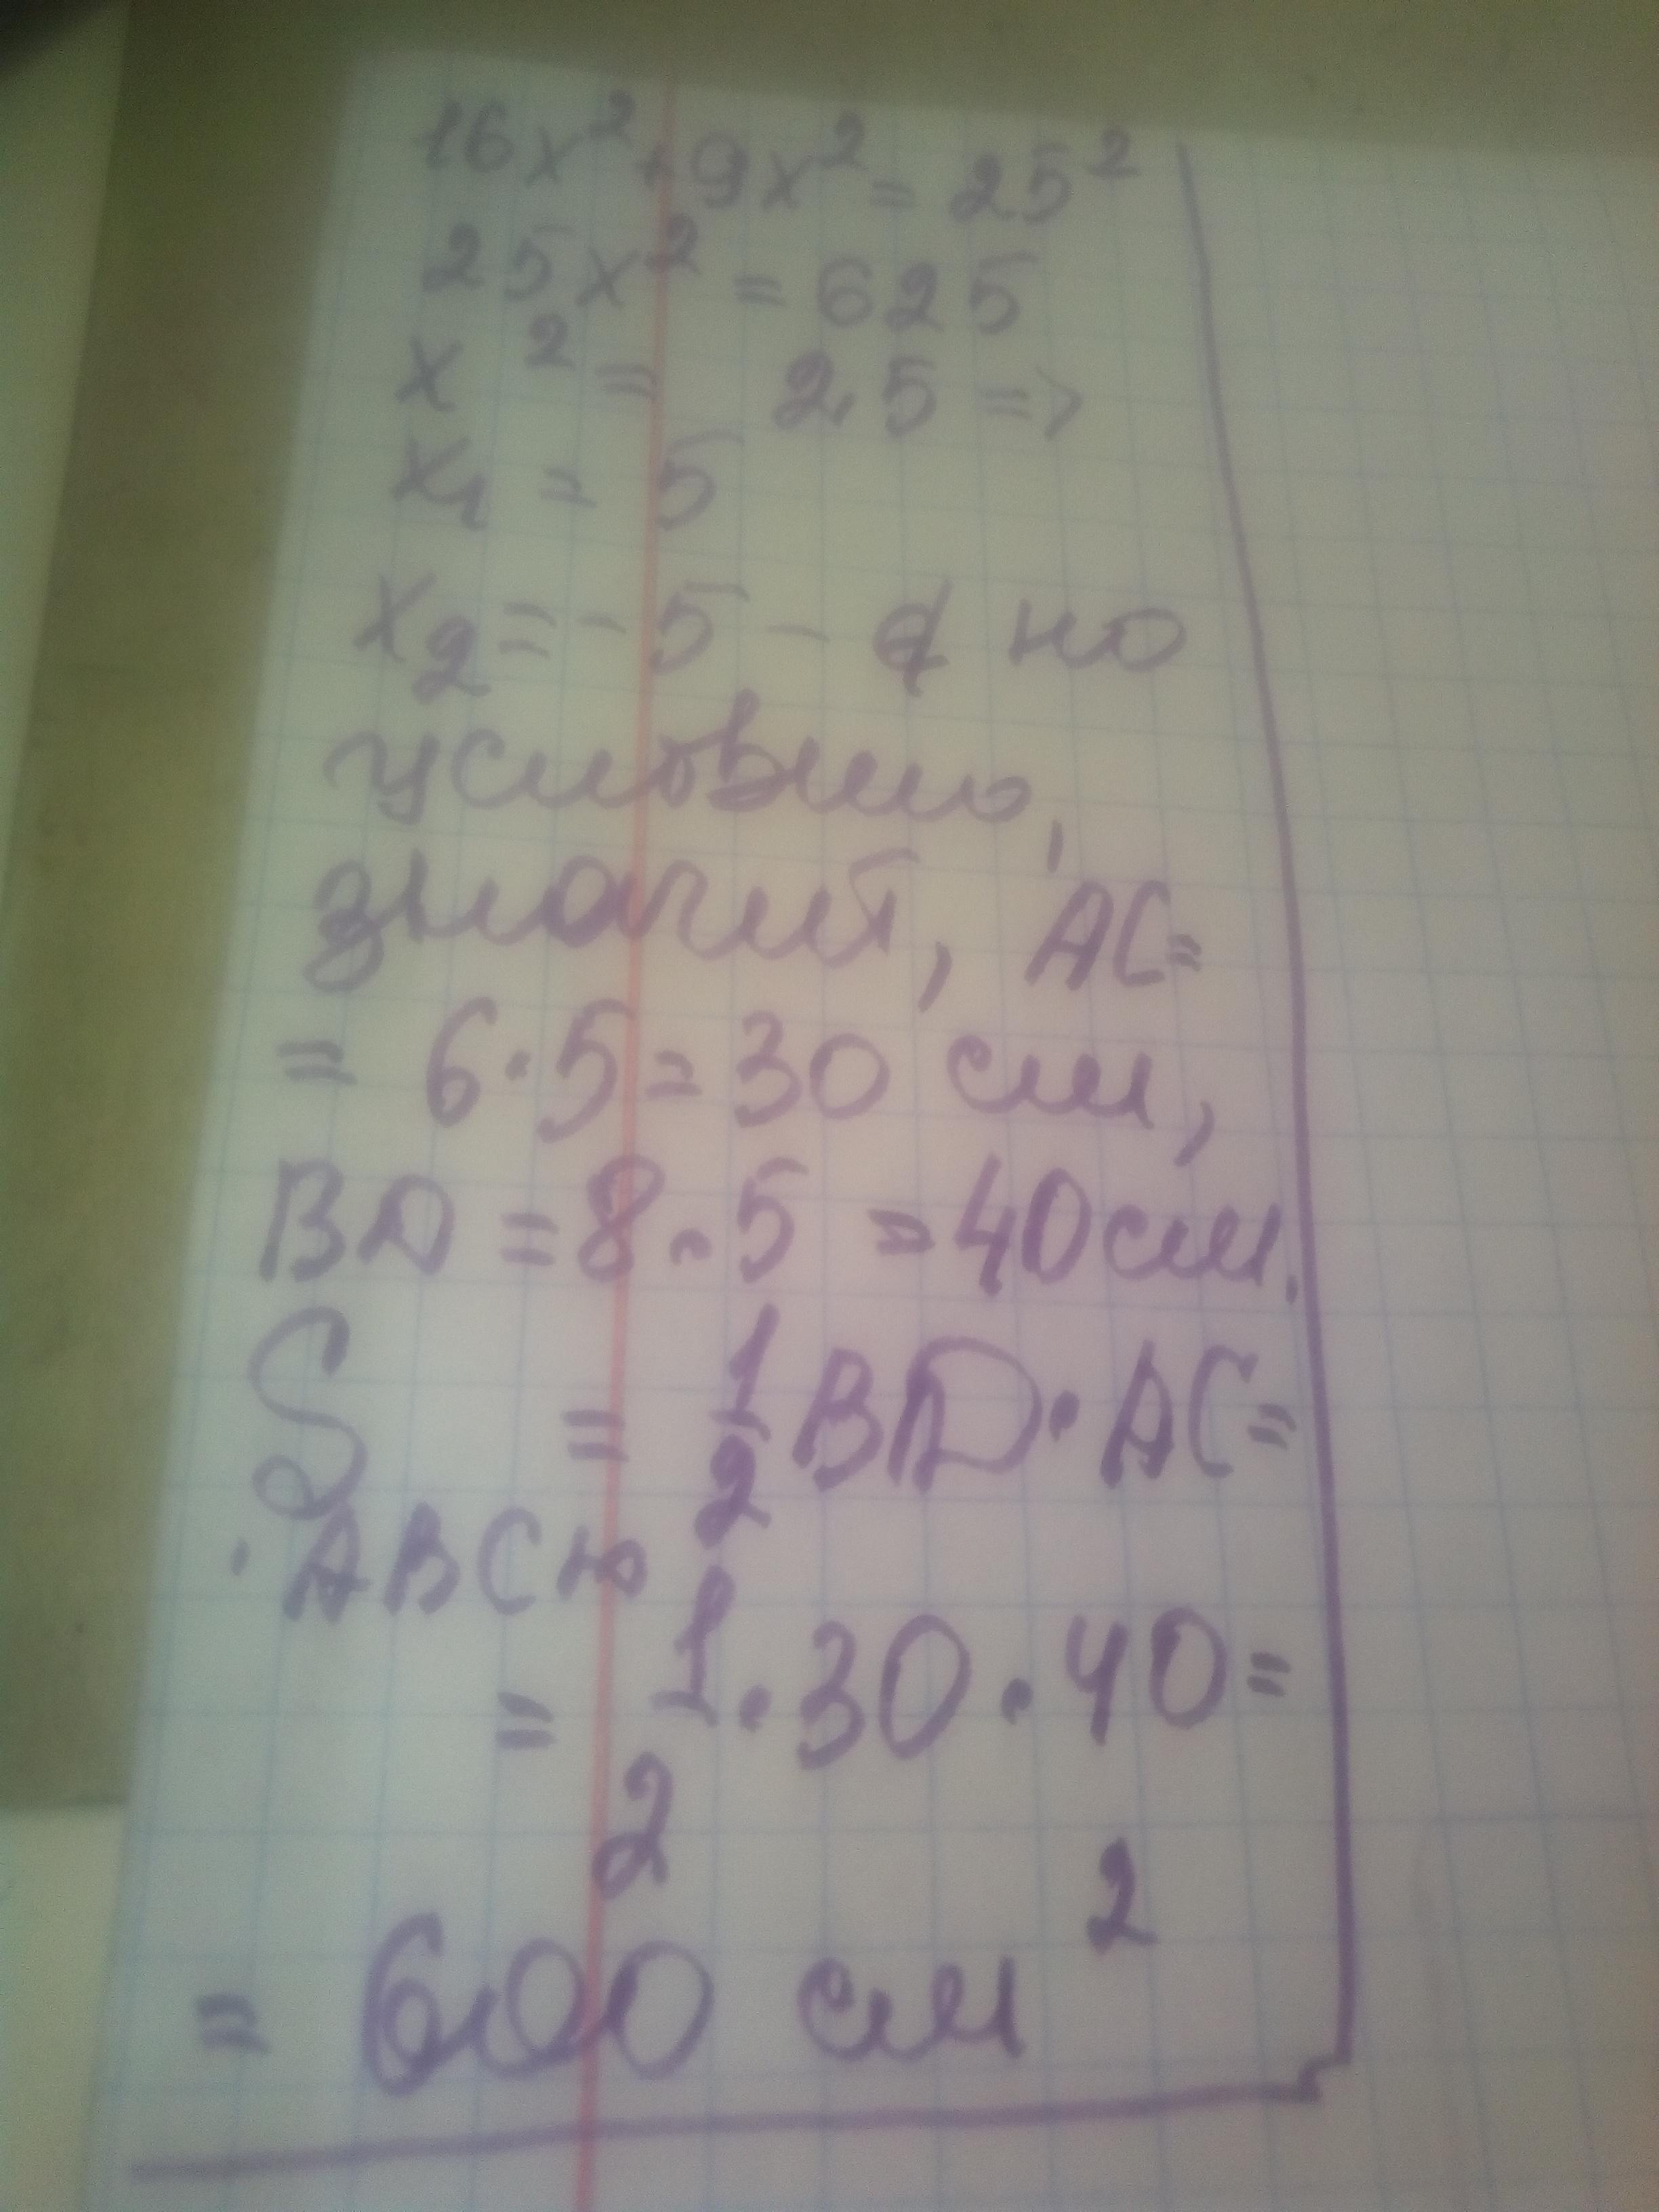 16x²+9x² = 25²
25x² = 625
x² = 25 =>
x₁ = 5
x₂ = -5 - ∉ по
условию,
значит, AC=
= 6·5=30 см,
BD = 8·5 = 40см.
S = 1/2 BD·AC=
ABCD
= 1/2·30·40=
= 600 см²